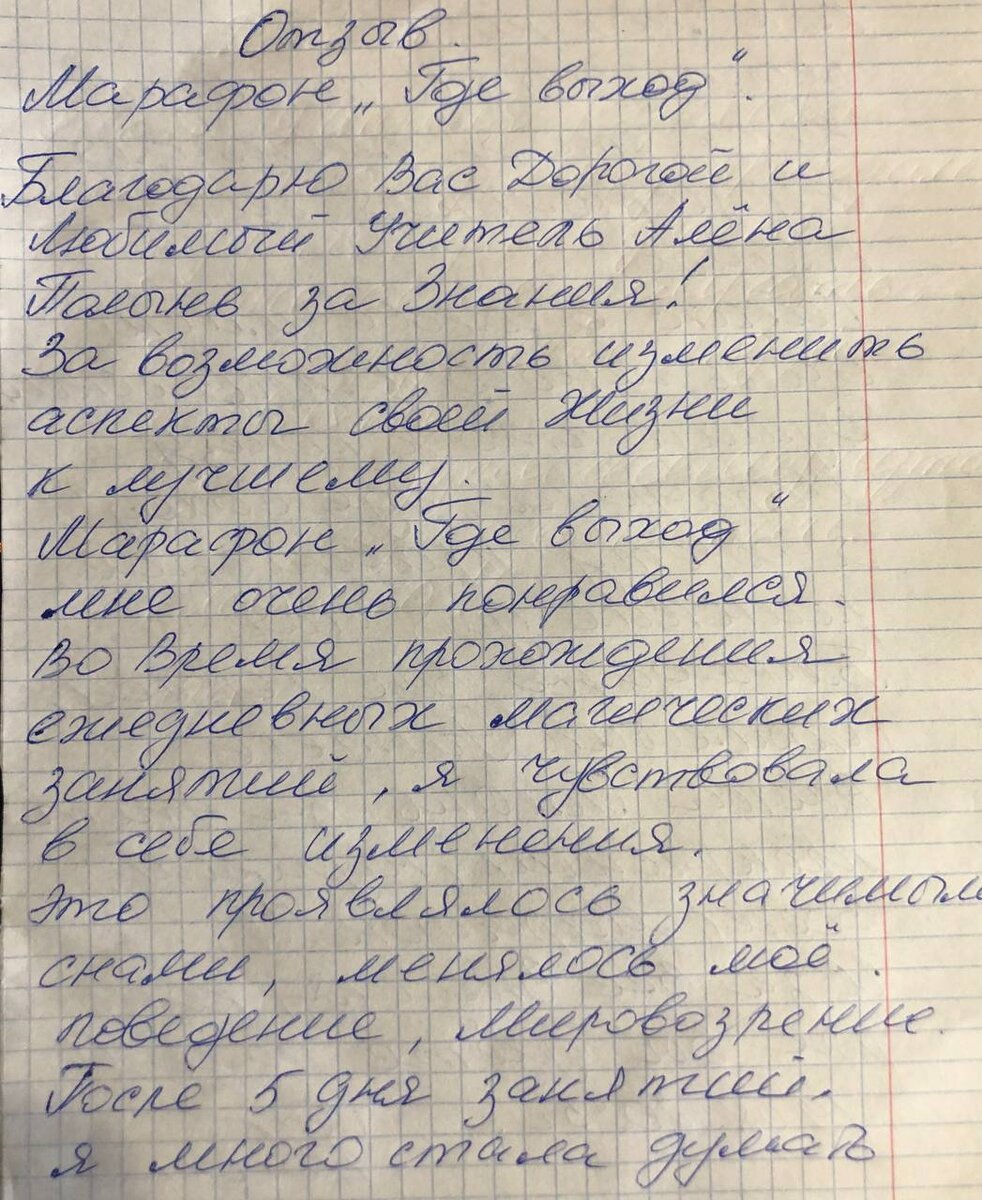 Отзыв.
Марафон „Где выход".
Благодарю Вас Дорогой и
Любимый Учитель Алёна
Полынь за Знания!
За возможность изменить
аспекты своей жизни
к лучшему.
Марафон „Где выход"
мне очень понравился.
Во Время прохождения
ежедневных магических
занятий, я чувствовала
в себе изменения.
Это проявлялось значимыми
снами, менялось моё
поведение, мировозрение.
После 5 дня занятий.
я много стала думать